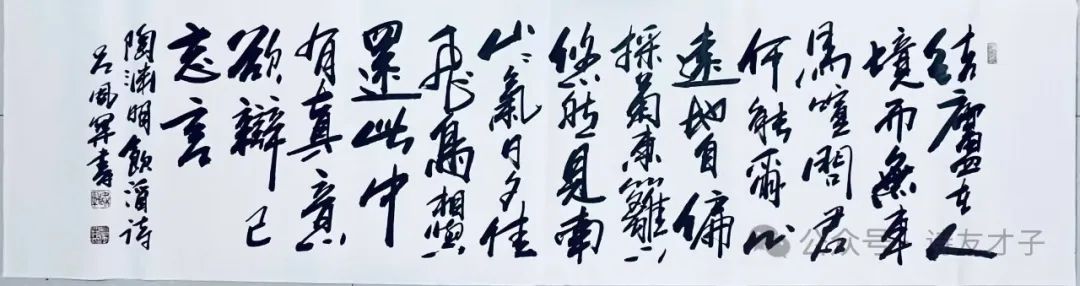 結廬在人
境而無車
馬喧問君
何能爾心
遠地自偏
採菊東籬下
悠然見南
山〻氣日夕佳
飛鳥相與
還此中
有真意
欲辯已
忘言
陶淵明飲酒詩
呂風書
公众号